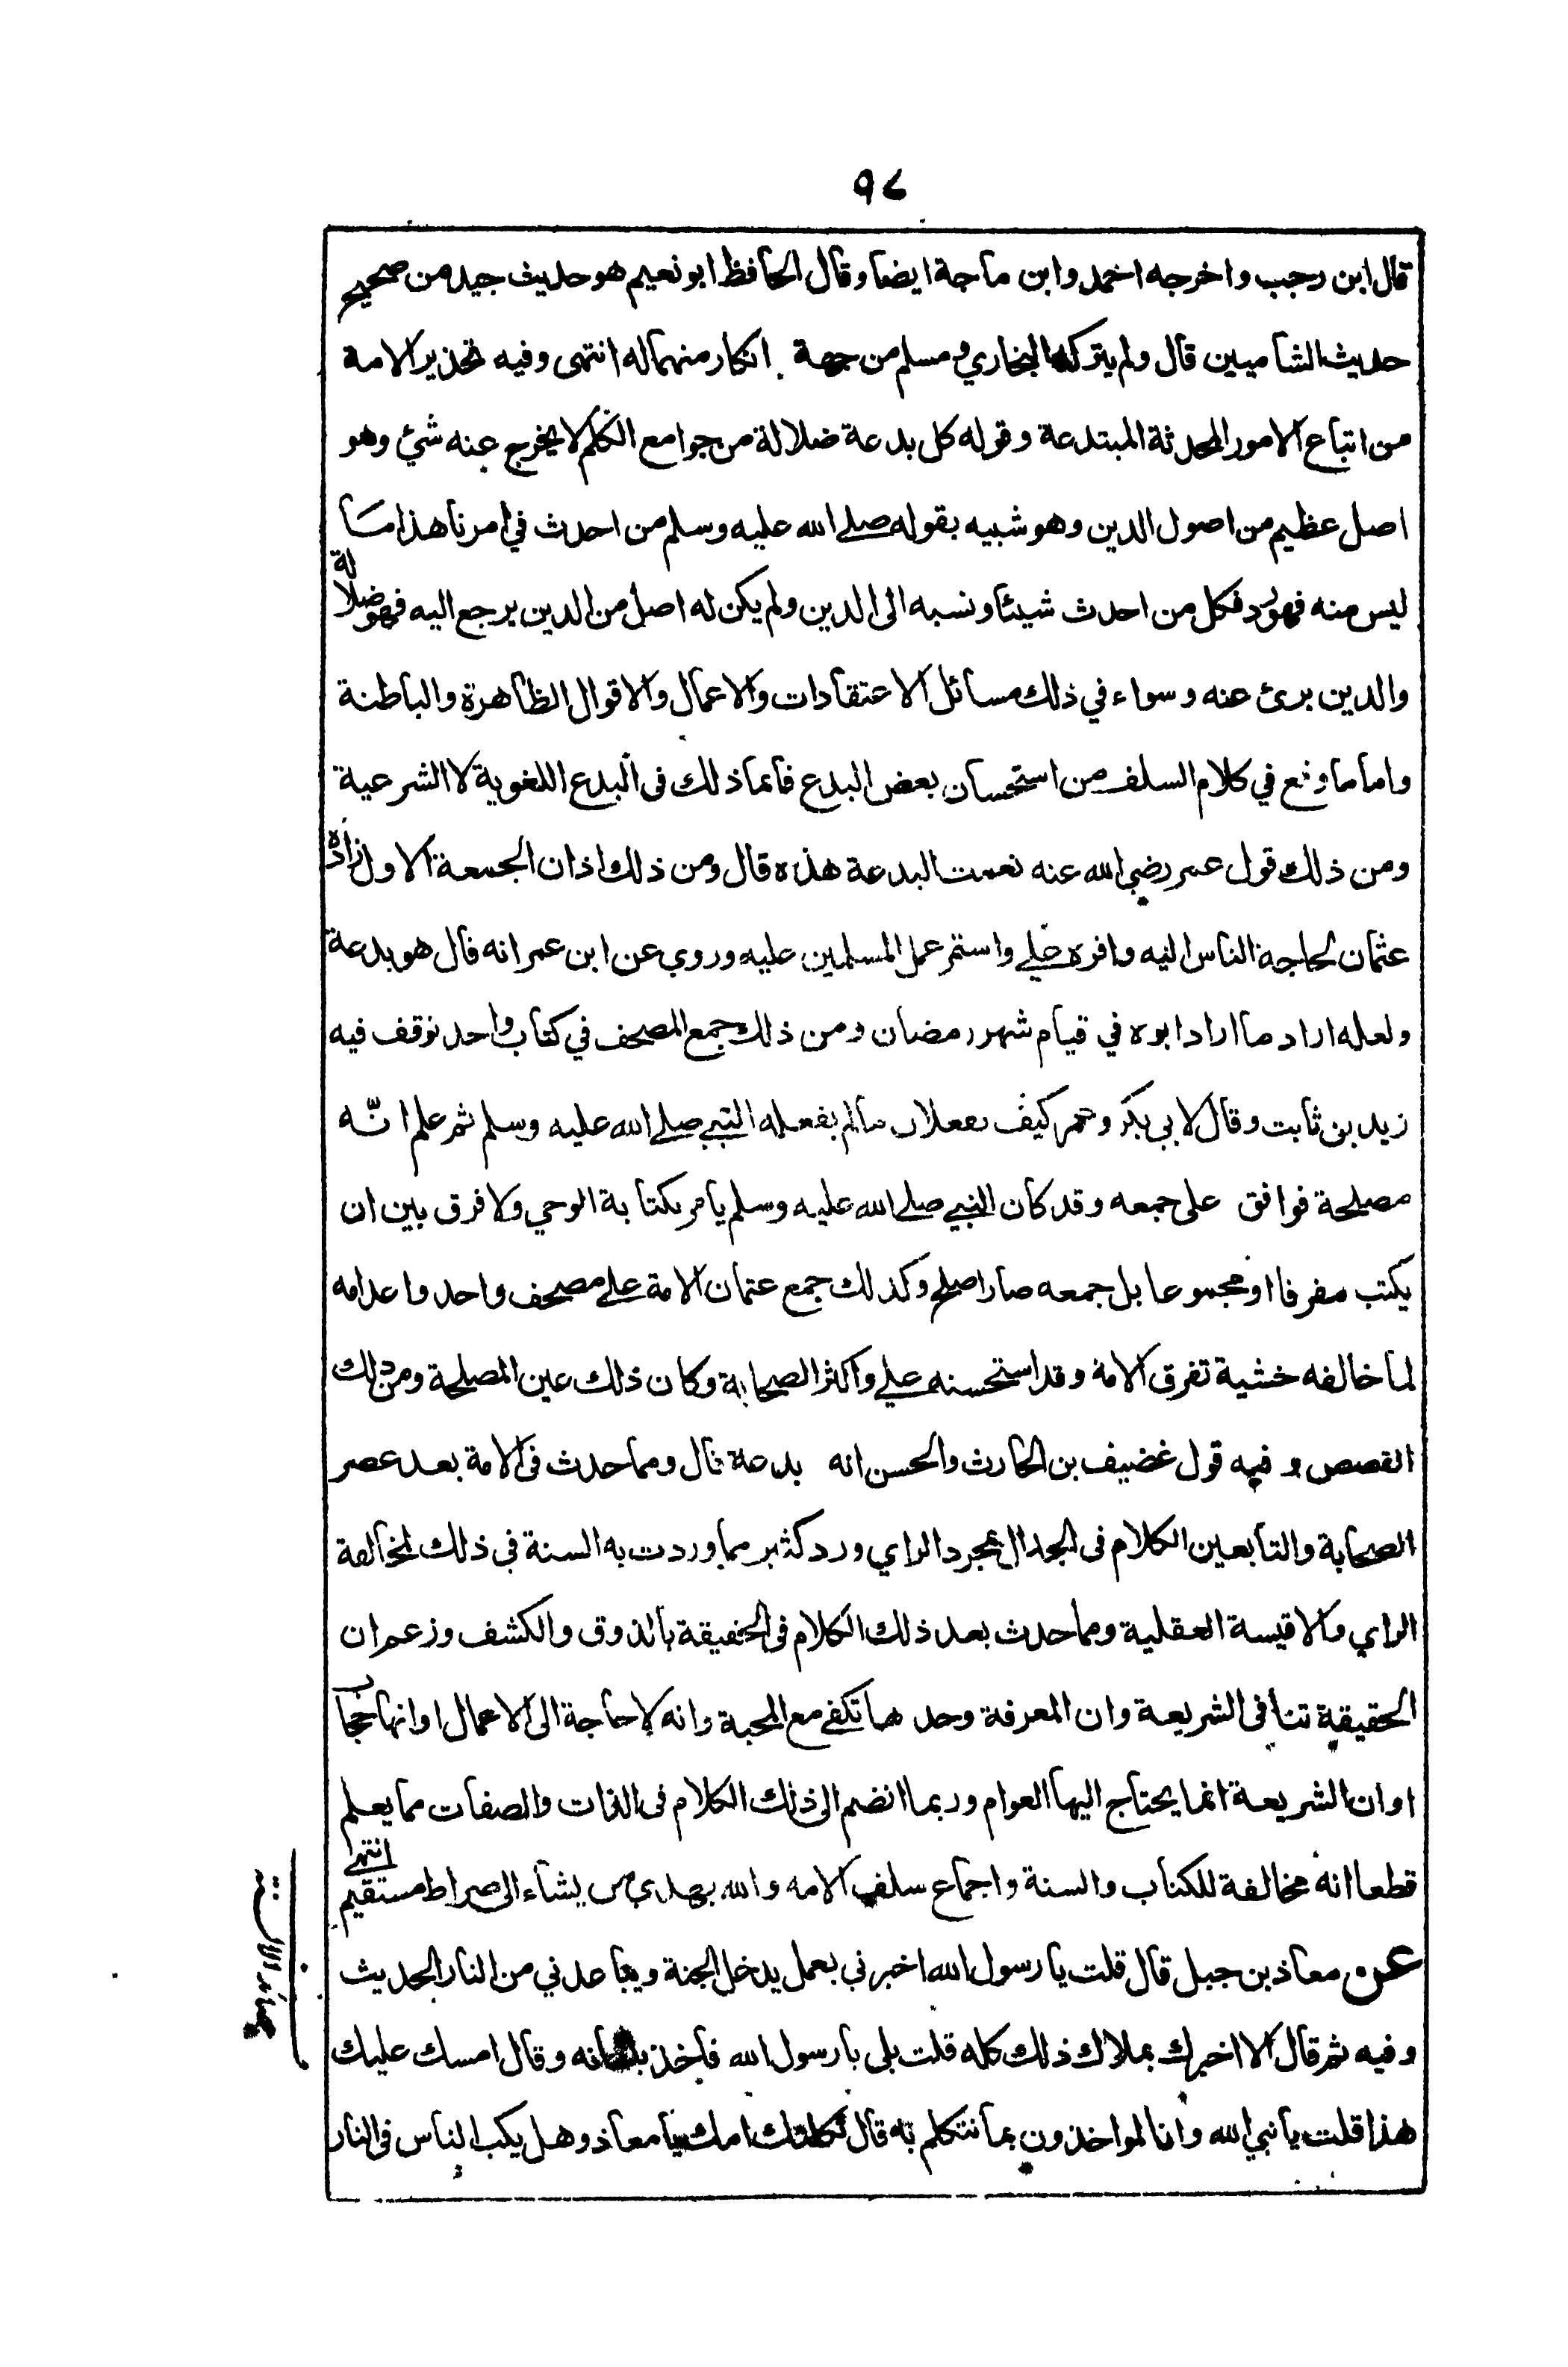 ٩٧
قال ابن رجب واخرجه احمد وابن ماجة ايضا وقال الحافظ ابو نعيم هو حديث جيد من صحيح
حديث الشاميين قال ولم يتركه البخاري ومسلم من جهة انكار منهما له انتهى وفيه تحذير الامة
من اتباع الامور المحدثة المبتدعة وقوله كل بدعة ضلالة من جوامع الكلم لا يخرج عنه شئ وهو
اصل عظيم من اصول الدين وهو شبيه بقوله صلے الله عليه وسلم من احدث في امرنا هذا ما
ليس منه فهو رد فكل من احدث شيئا ونسبه الى الدين ولم يكن له اصل من الدين يرجع اليه فهو ضلالة
والدين برئ عنه وسواء في ذلك مسائل الاعتقادات والاعمال والاقوال الظاهرة والباطنة
واما ما وقع في كلام السلف من استحسان بعض البدع فانما ذلك فى البدع اللغوية لا الشرعية
ومن ذلك قول عمر رضي الله عنه نعمت البدعة هذه قال ومن ذلك اذان الجمعة الاول زاده
عثمان لحاجة الناس اليه واقره علے واستمر عمل المسلمين عليه وروي عن ابن عمر انه قال هو بدعة
ولعله اراد ما اراد ابوه في قيام شهر رمضان ومن ذلك جمع المصحف في كتاب واحد توقف فيه
زيد بن ثابت وقال لابي بكر وعمر كيف تفعلان ما لم يفعله النبے صلے الله عليه وسلم ثم علم انّه
مصلحة فوافق على جمعه وقد كان النبے صلے الله عليه وسلم يامر بكتابة الوحي ولا فرق بين ان
يكتب مفرقا او مجموعا بل جمعه صار اصلح وكذلك جمع عثمان الامة علے مصحف واحد واعدامه
لما خالفه خشية تفرق الامة وقد استحسنه علے واكثر الصحابة وكان ذلك عين المصلحة ومن ذلك
القصص وفيه قول غضيف بن الحارث والحسن انه بدعة قال ومما حدث فى الامة بعد عصر
الصحابة والتابعين الكلام فى الجدال بمجرد الراي ورد كثير مما وردت به السنة في ذلك لمخالفة
الراي والاقيسة العقلية ومما حدث بعد ذلك الكلام فى الحقيقة بالذوق والكشف وزعم ان
الحقيقة تنافى الشريعة وان المعرفة وحدها تكفے مع المحبة وانه لا حاجة الى الاعمال او انها حجاب
او ان الشريعة انما يحتاج اليها العوام وربما انضم الى ذلك الكلام فى الذات والصفات مما يعلم
قطعا انه مخالفة للكتاب والسنة واجماع سلف الامه والله يهدي من يشاء الى صراط مستقيم انتهے
عن معاذ بن جبل قال قلت يا رسول الله اخبرني بعمل يدخل الجنة ويباعدني من النار الحديث
وفيه ثم قال الا اخبرك بملاك ذلك كله قلت بلى يا رسول الله فاخذ بلسانه وقال امسك عليك
هذا قلت يا نبي الله وانا لمواخذون بما نتكلم به قال ثكلتك امك يا معاذ وهل يكب الناس فى النار